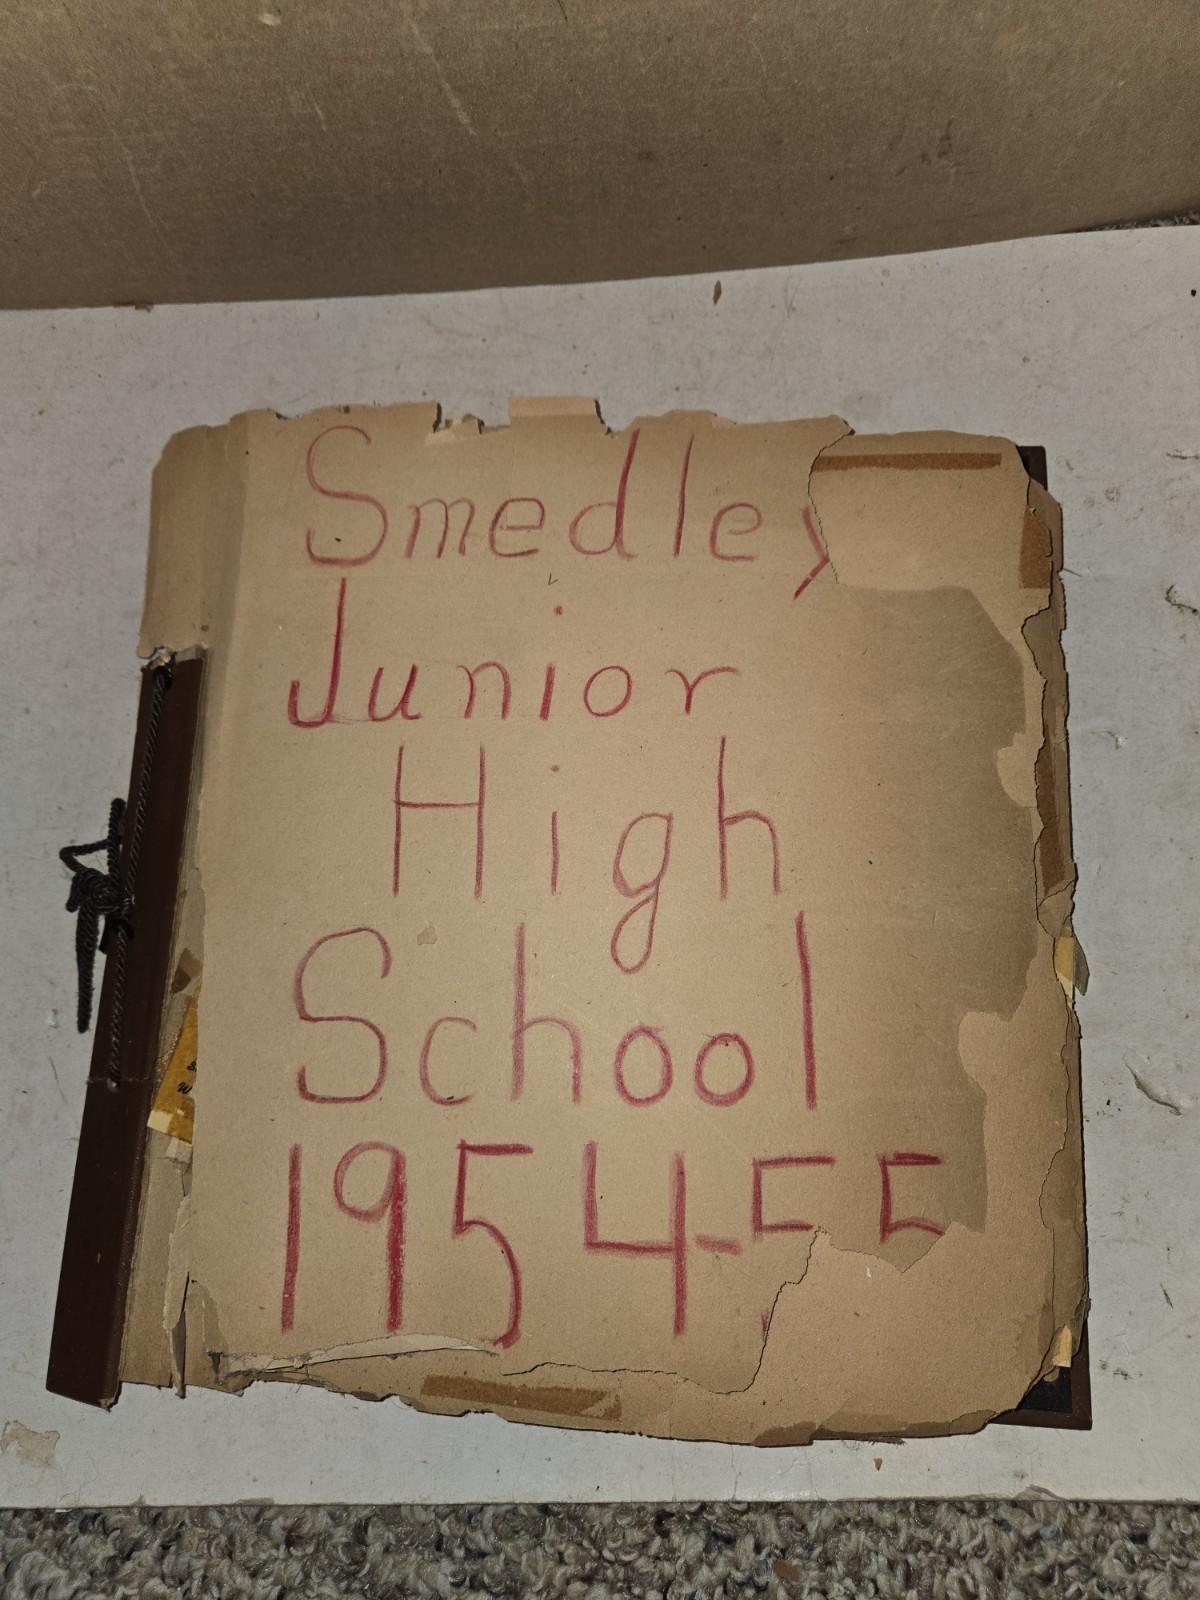 Smedley
Junior
High
School
1954-55